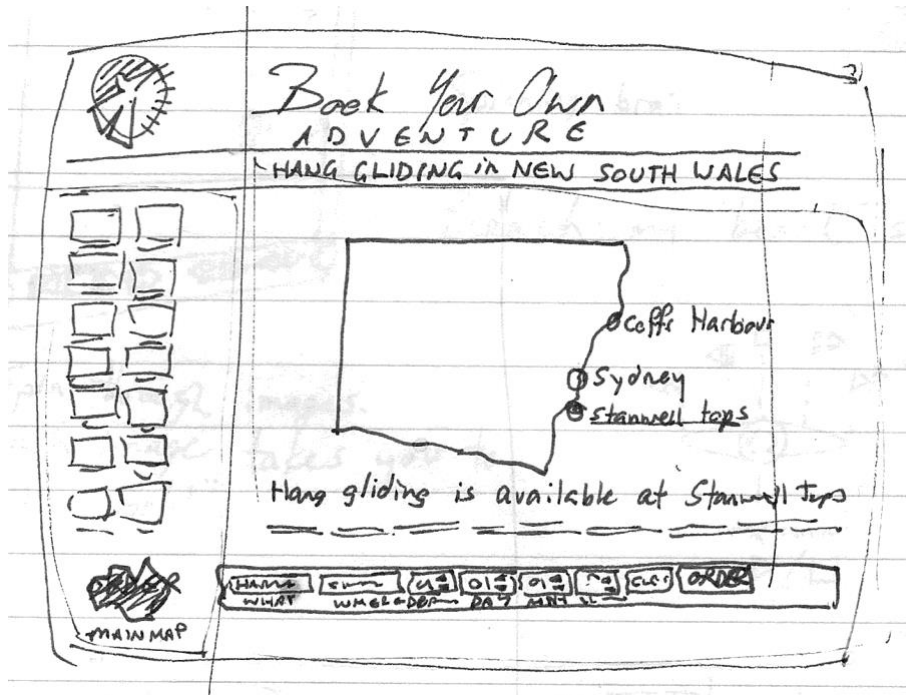 Book Your Own
ADVENTURE
HANG GLIDING in NEW SOUTH WALES
Coffs Harbour
Sydney
Stanwell tops
Hang gliding is available at Stanwell Tops
HANG
01
ORDER
WHAT
DAY
MAIN MAP